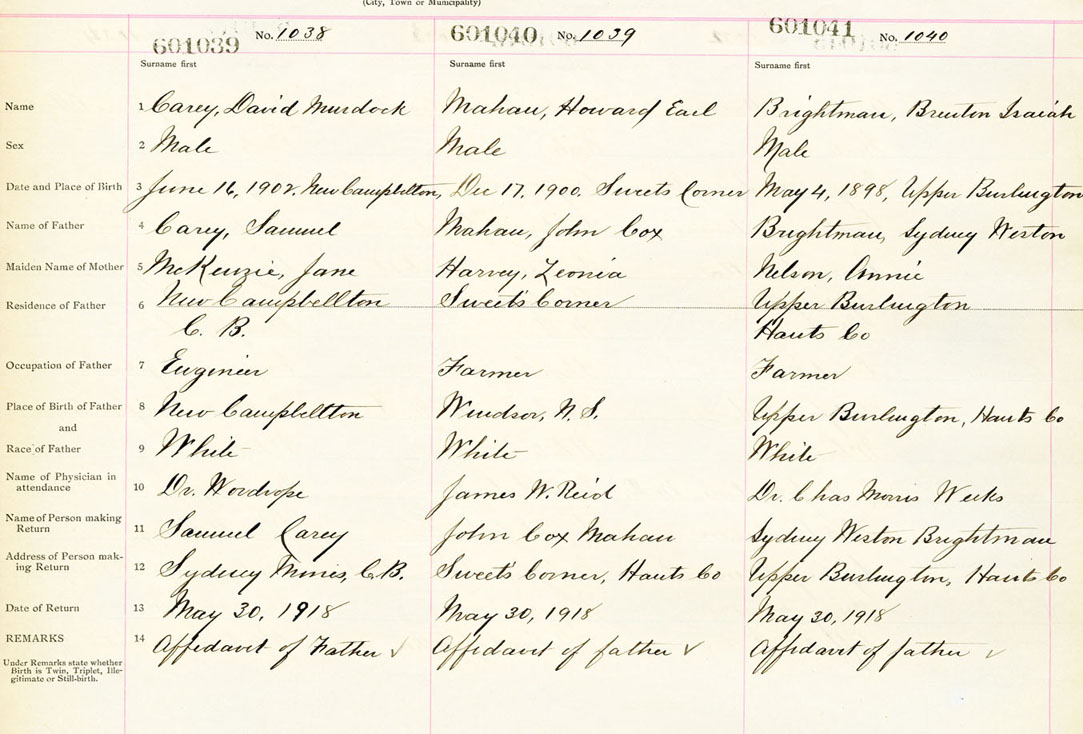 (City, Town or Municipality)
601039 No. 1038 601040 No. 1039 601041 No. 1040
Surname first Surname first Surname first
Name 1 Carey, David Murdock Mahan, Howard Earl Brightman, Brenton Isaiah
Sex 2 Male Male Male
Date and Place of Birth 3 June 16, 1902. New Campbellton, Dec 17, 1900. Sweets Corner May 4, 1898, Upper Burlington
Name of Father 4 Carey, Samuel Mahan, John Cox Brightman, Sydney Weston
Maiden Name of Mother 5 McKenzie, Jane Harvey, Leonia Nelson, Annie
Residence of Father 6 New Campbellton Sweet's Corner Upper Burlington
C. B. Hants Co
Occupation of Father 7 Engineer Farmer Farmer
Place of Birth of Father 8 New Campbellton Windsor, N.S. Upper Burlington, Hants Co
and
Race of Father 9 White White White
Name of Physician in
attendance 10 Dr. Wordrope James W. Reid Dr. Chas Morris Weeks
Name of Person making
Return 11 Samuel Carey John Cox Mahan Sydney Weston Brightman
Address of Person mak-
ing Return 12 Sydney Mines, C.B. Sweet's Corner, Hants Co Upper Burlington, Hants Co
Date of Return 13 May 30, 1918 May 30, 1918 May 30, 1918
REMARKS 14 Affidavit of Father ✓ Affidavit of father ✓ Affidavit of father ✓
Under Remarks state whether
Birth is Twin, Triplet, Ille-
gitimate or Still-birth.